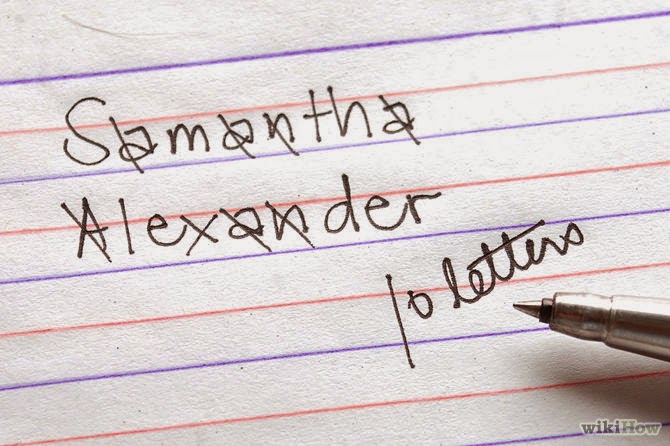 Samantha
Alexander
10 letters
wikiHow